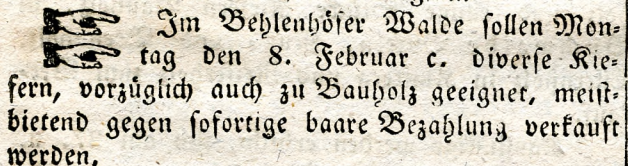 Im Behlenhöfer Walde sollen Mon⸗
tag den 8. Februar c. diverse Kie⸗
fern, vorzüglich auch zu Bauholz geeignet, meist⸗
bietend gegen sofortige baare Bezahlung verkauft
werden.